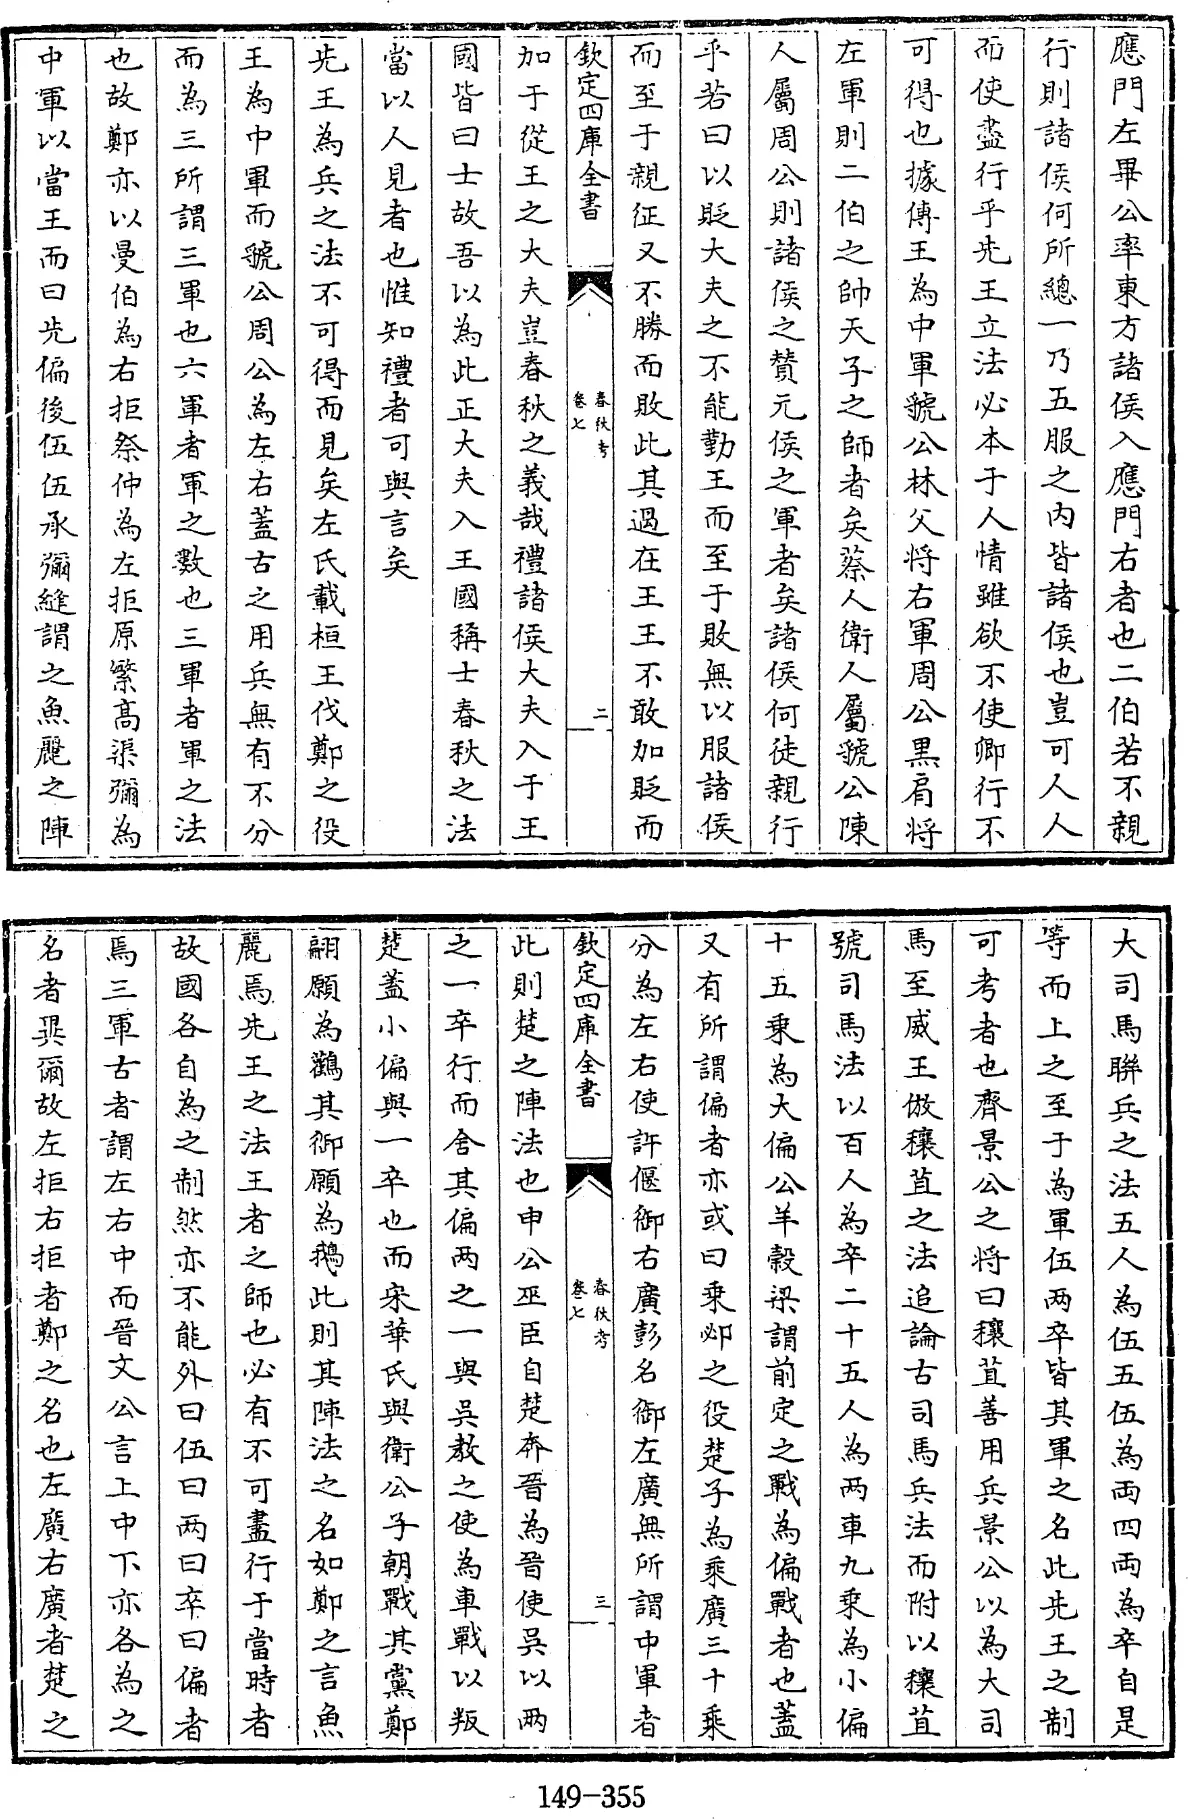 應門左畢公率東方諸侯入應門右者也二伯若不親
行則諸侯何所總一乃五服之内皆諸侯也豈可人人
而使盡行乎先王立法必本于人情雖欲不使卿行不
可得也據傳王為中軍虢公林父将右軍周公黒肩将
左軍則二伯之帥天子之師者矣蔡人衛人屬虢公陳
人屬周公則諸侯之賛元侯之軍者矣諸侯何徒親行
乎若曰以貶大夫之不能勤王而至于敗無以服諸侯
而至于親征又不勝而敗此其過在王王不敢加貶而
欽定四庫全書
春秋考
卷七
二
加于從王之大夫豈春秋之義哉禮諸侯大夫入于王
國皆曰士故吾以為此正大夫入王國稱士春秋之法
當以人見者也惟知禮者可與言矣
先王為兵之法不可得而見矣左氏載桓王伐鄭之役
王為中軍而虢公周公為左右蓋古之用兵無有不分
而為三所謂三軍也六軍者軍之數也三軍者軍之法
也故鄭亦以曼伯為右拒祭仲為左拒原繁高渠彌為
中軍以當王而曰先偏後伍伍承彌縫謂之魚麗之陣
大司馬聨兵之法五人為伍五伍為両四両為卒自是
等而上之至于為軍伍两卒皆其軍之名此先王之制
可考者也齊景公之将曰穰苴善用兵景公以為大司
馬至威王倣穰苴之法追論古司馬兵法而附以穰苴
號司馬法以百人為卒二十五人為两車九乗為小偏
十五乗為大偏公羊穀梁謂前定之戰為偏戰者也蓋
又有所謂偏者亦或曰乗邲之役楚子為乗廣三十乗
分為左右使許偃御右廣彭名御左廣無所謂中軍者
欽定四庫全書
春秋考
卷七
三
此則楚之陣法也申公巫臣自楚奔晉為晉使吳以两
之一卒行而舍其偏两之一與吳教之使為車戰以叛
楚蓋小偏與一卒也而宋華氏與衛公子朝戰其黨鄭
翩願為鸛其御願為鵝此則其陣法之名如鄭之言魚
麗焉先王之法王者之師也必有不可盡行于當時者
故國各自為之制然亦不能外曰伍曰两曰卒曰偏者
焉三軍古者謂左右中而晉文公言上中下亦各為之
名者異爾故左拒右拒者鄭之名也左廣右廣者楚之
149-355